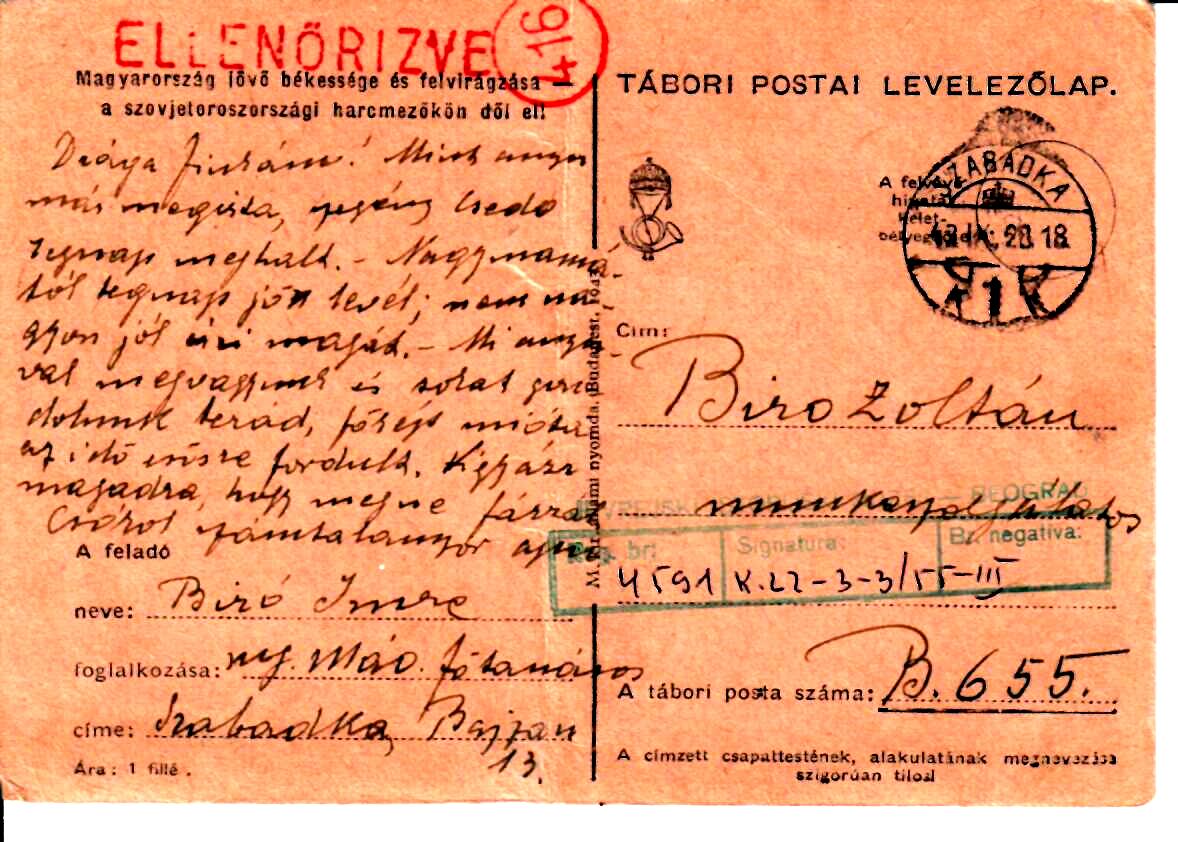 ELLENŐRIZVE
416
Magyarország jövő békessége és felvirágzása
a szovjetoroszországi harcmezőkön dől el!
Drága Fiukám! Mint anyu
már megírta, szegény Csedo
tegnap meghalt. - Nagymamá-
tól tegnap jött levél; nem na-
gyon jól érzi magát. - Mi anyu-
val megvagyunk és sokat gon
dolunk terád, főképp mióta
az idő esősre fordult. Vigyázz
magadra, hogy meg ne fázzál
Csókol számtalanszor apud
A feladó
neve: Biró Imre
foglalkozása: ny. Máv. főtanácsos
címe: Szabadka, Bajzau
13.
Ára: 1 fillé.
M. kir. állami nyomda, Budapest, 1943
TÁBORI POSTAI LEVELEZŐLAP.
A felvevő
hivatal
kelet-
bélyegzője
SZABADKA
43. IX. 28. 18
1
K K
Cím:
Biro Zoltán
munkaszolgálatos
BEOGRAD
Reg. br: Signatura: Br. negativa:
4591 K.22-3-3/55-III
A tábori posta száma: B. 655.
A címzett csapattestének, alakulatának megnevezése
szigorúan tilos!